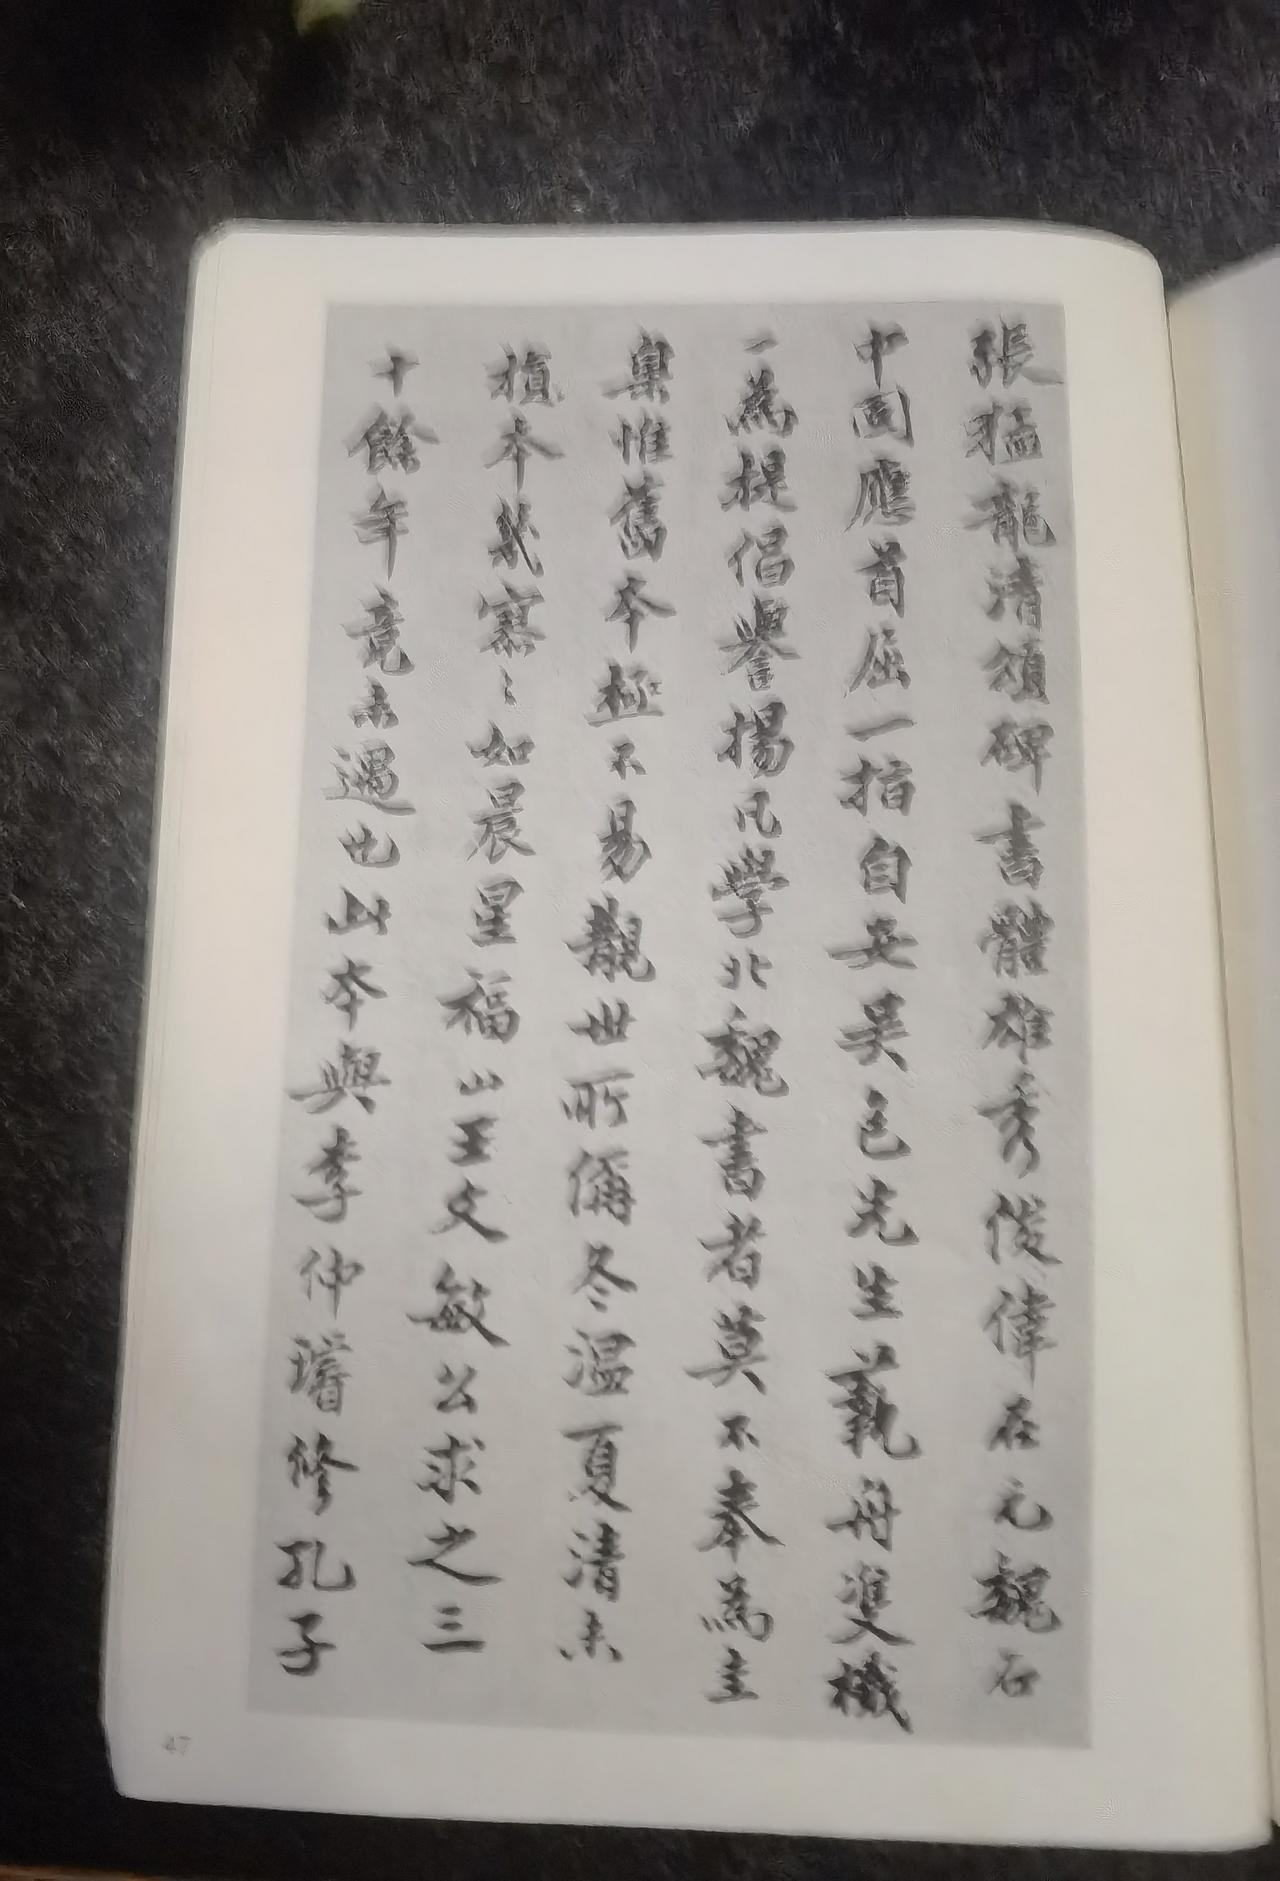 張猛龍清頌碑書體雄秀俊偉在元魏石
中固應首屈一指自安吴包先生藝舟雙檝
一為提倡譽揚凡學北魏書者莫不奉為主
臬惟舊本極不易覯世所稱冬温夏清未
損本幾寥〻如晨星福山王文敏公求之三
十餘年竟未遇也此本與李仲璿修孔子
47